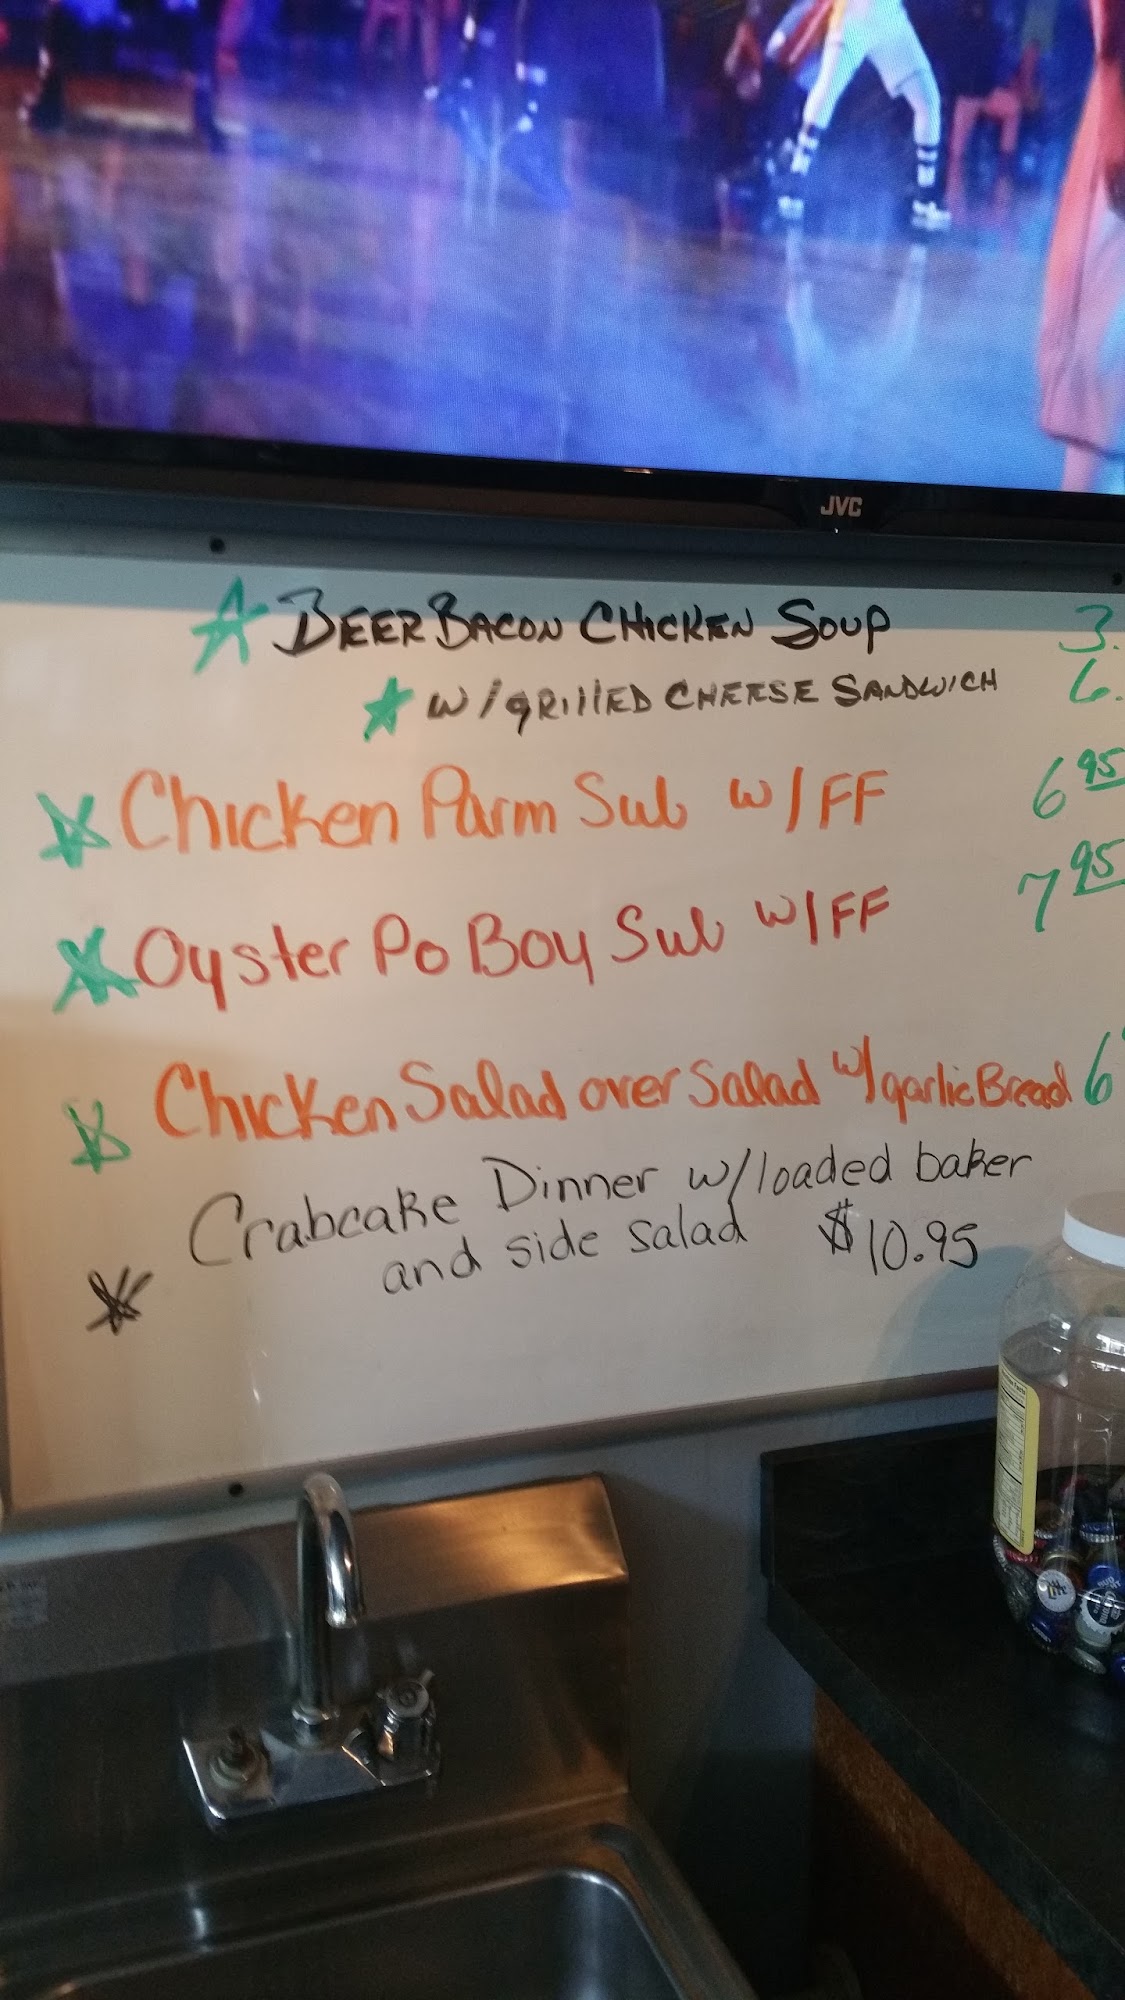 JVC
BEER BACON CHICKEN SOUP 3.
W/GRILLED CHEESE SANDWICH 6.
Chicken Parm Sub w/FF 6 95
Oyster Po Boy Sub w/FF 7 95
Chicken Salad over Salad w/garlic Bread 6
Crabcake Dinner w/loaded baker
and side salad $10.95